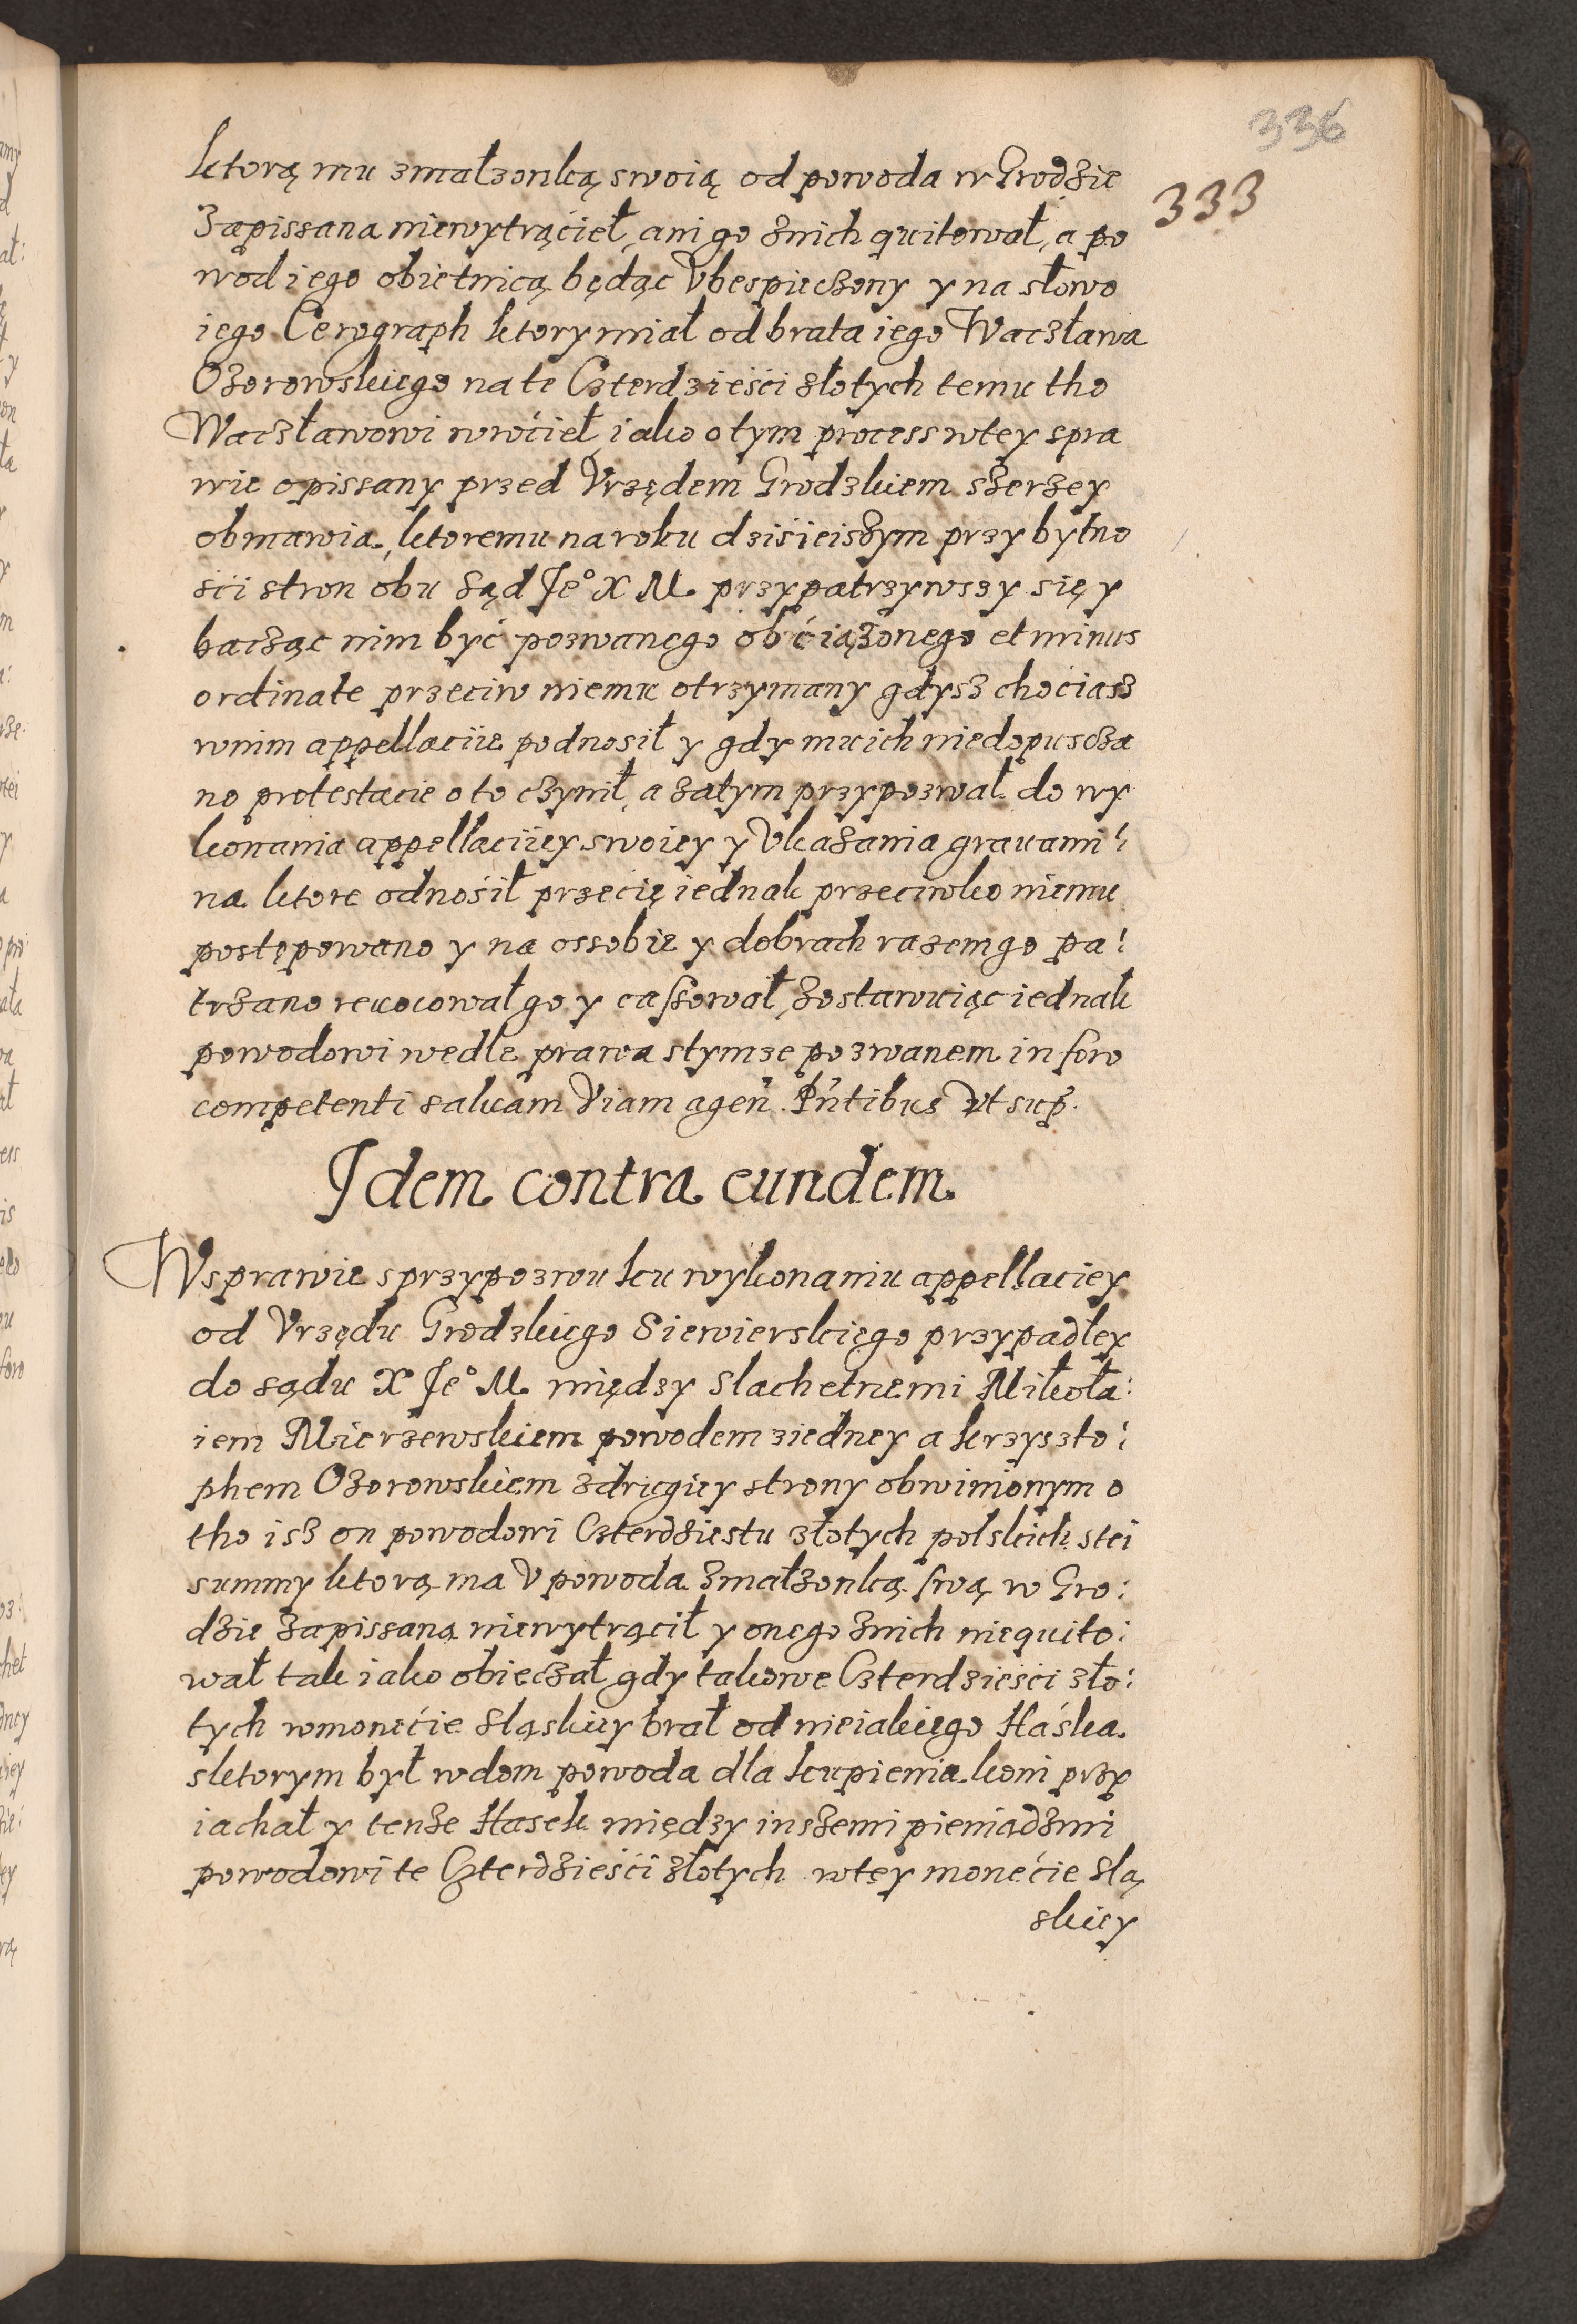 336
333
ktorą mu zmałzonką swoią od powoda w Grodzie
Zapissana niewytrąćieł, ani go znich quitował, a po
wod iego obietnicą będąc Vbespieczony y na słowo
iego Cerograph ktory miał od brata iego Waczława
Ozorowskiego na te Czterdzieśći złotych temu tho
Waczławowi wroćieł iako o tym process wtey spra
wie opissany przed Vrzędem Grodzkiem szerzey
obmawia, ktoremu na roku dzisieiszym przy bytno
śći stron obu Sąd Je° X M. przypatrzywszy się y
bacząc nim być pozwanego obćiążonego et minus
ordinate przeciw niemu otrzymany gdysz choćiasz
wnim appellaciie podnosił y gdy mu ich niedopuscza
no protestacie o to czynił, a zatym przypozwał do wy
konania appellaciiey swoiey y Vkazania grauami:
na ktore odnośił przećię iednak przeciwko niemu
postępowano y na ossobie y dobrach razem go pa:
trzano reuocował go y cassował, zostawuiąc iednak
powodowi wedle prawa stymze pozwanem in foro
competenti saluam Viam agen. Pńtibus Vt sup.
Idem contra eundem
W sprawie sprzypozwu ku wykonaniu appellaciey
od Vrzędu Grodzkiego Siewierskiego przypadłey
do sądu X Je° M. między Slachetnemi Mikoła:
iem Mierzewskiem powodem ziedney a Krzyszto:
phem Ozorowskiem zdrugiey strony obwinionym o
tho isz on powodowi Czterdziestu złotych polskich stei
summy ktorą ma V powoda zmałzonką swą w Gro:
dzie zapissaną niewytrącił y onego znich niequito:
wał tak iako obieczał gdy takowe Czterdzieśći zło:
tych wmonećie Sląskiey brał od nieiakiego Haśka
sktorym był wdom powoda dla kupienia koni przy
iachał y tenze Hasek między inszemi pieniądzmi
powodowi te Czterdzieśći złotych wtey monećie Slą
skiey